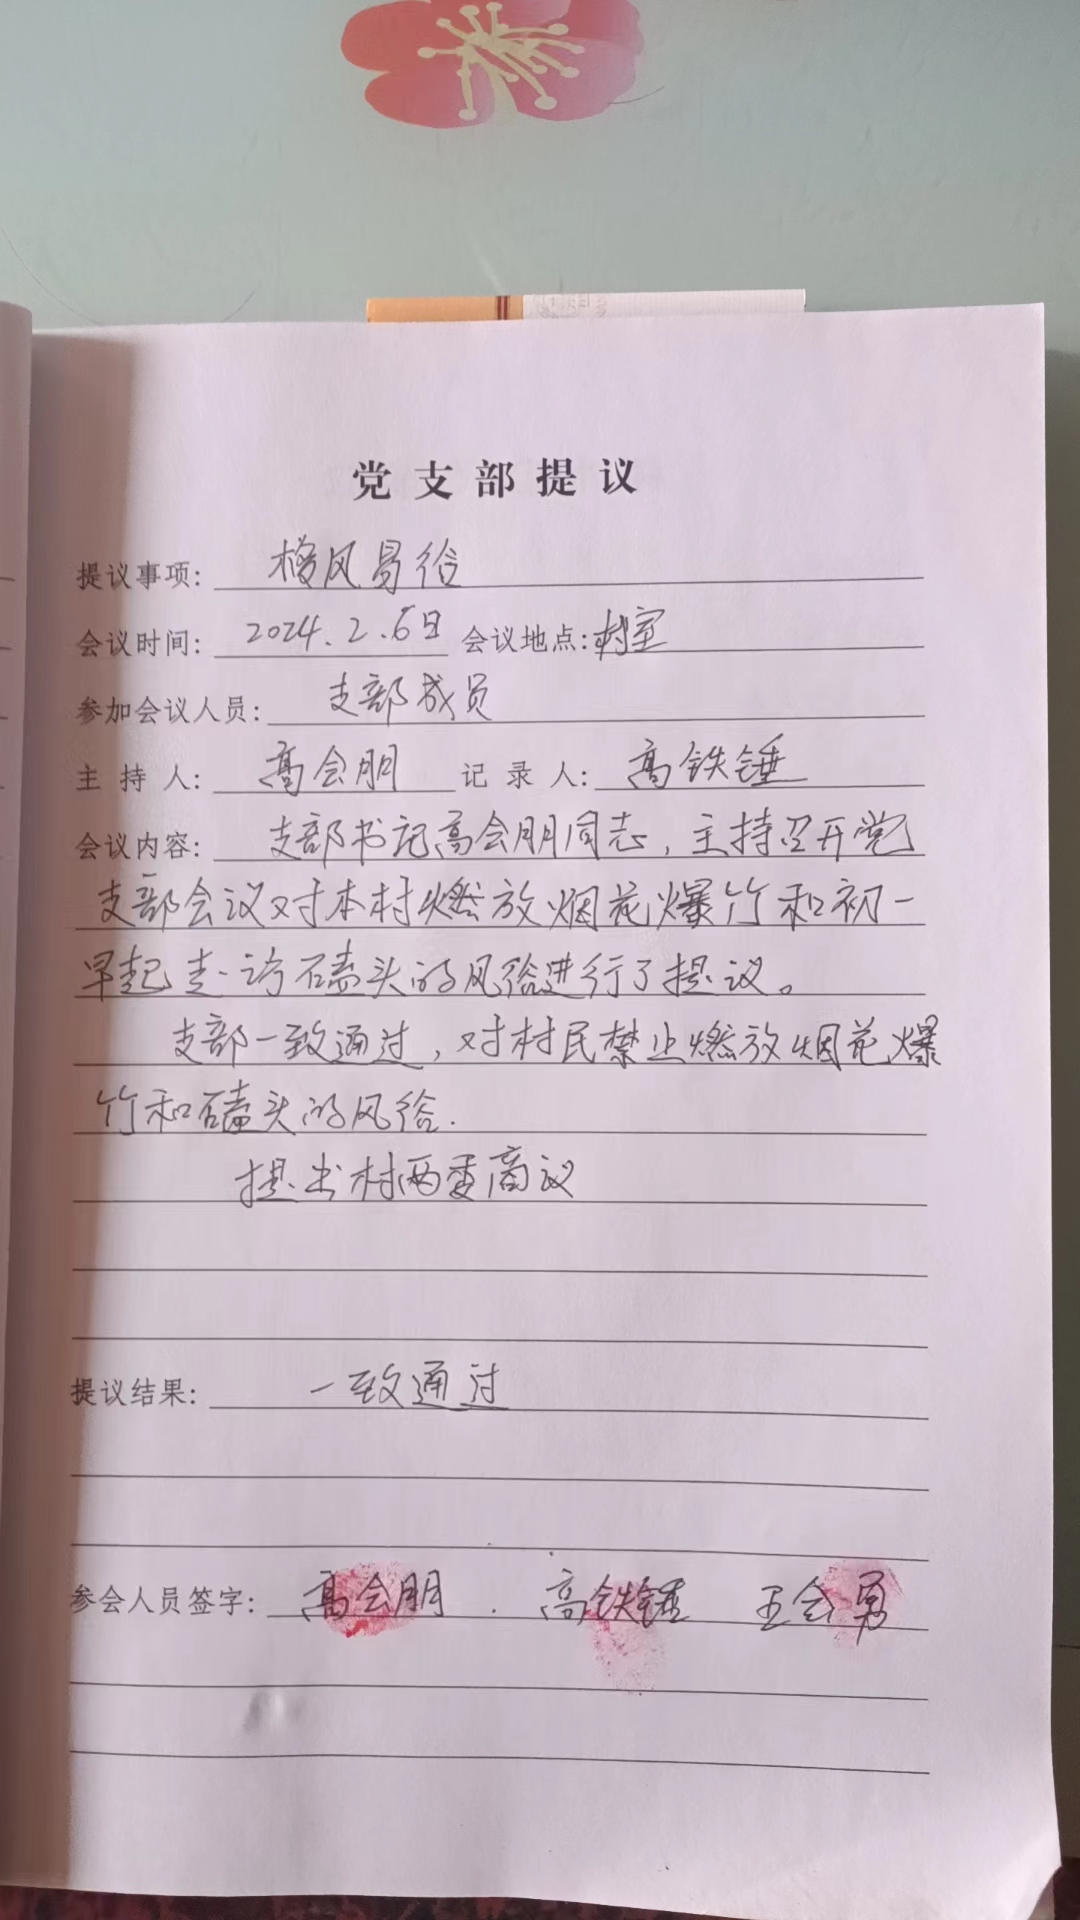 党支部提议
提议事项: 移风易俗
会议时间: 2024.2.6日 会议地点: 村室
参加会议人员: 支部成员
主持人: 高会朋 记录人: 高铁锤
会议内容: 支部书记高会朋同志，主持召开党
支部会议对本村燃放烟花爆竹和初一
早起走访磕头的风俗进行了提议。
支部一致通过，对村民禁止燃放烟花爆
竹和磕头的风俗.
提出村两委商议
提议结果: 一致通过
参会人员签字: 高会朋 . 高铁锤 王会勇